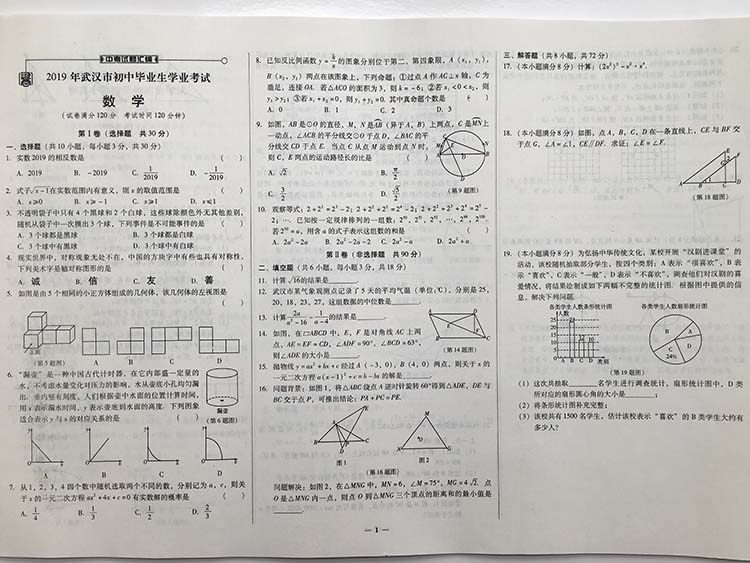 中考试题汇编
2019年武汉市初中毕业生学业考试
数学
(试卷满分120分 考试时间120分钟)
第Ⅰ卷(选择题 共30分)
一、选择题(共10小题,每小题3分,共30分)
1. 实数2019的相反数是 ( )
A. 2019 B. -2019 C. 1/2019 D. -1/2019
2. 式子√(x-1)在实数范围内有意义,则x的取值范围是 ( )
A. x≥0 B. x≥-1 C. x≥1 D. x≤1
3. 不透明袋子中只有4个黑球和2个白球,这些球除颜色外无其他差别,
随机从袋子中一次摸出3个球,下列事件是不可能事件的是 ( )
A. 3个球都是黑球 B. 3个球都是白球
C. 3个球中有黑球 D. 3个球中有白球
4. 现实世界中,对称现象无处不在,中国的方块字中有些也具有对称性,
下列美术字是轴对称图形的是 ( )
A. 诚 B. 信 C. 友 D. 善
5. 如图是由5个相同的小正方体组成的几何体,该几何体的左视图是
( )
主面
(第5题图) A B C D
6. “漏壶”是一种中国古代计时器,在它内部盛一定量的
水,不考虑水量变化对压力的影响,水从壶底小孔均匀漏
出,壶内壁有刻度,人们根据壶中水面的位置计算时间,
用x表示漏水时间,y表示壶底到水面的高度.下列图象
适合表示y与x的对应关系的是 ( )
漏壶
(第6题图)
A B C D
7. 从1、2、3、4四个数中随机选取两个不同的数,分别记为a,c,则关
于x的一元二次方程ax²+4x+c=0有实数解的概率是 ( )
A. 1/4 B. 1/3 C. 1/2 D. 2/3
8. 已知反比例函数y=k/x的图象分别位于第二、第四象限,A(x₁,y₁),
B(x₂,y₂)两点在该图象上,下列命题:①过点A作AC⊥x轴,C为
垂足,连接OA.若△ACO的面积为3,则k=-6;②若x₁<0<x₂,则
y₁>y₂;③若x₁+x₂=0,则y₁+y₂=0.其中真命题个数是 ( )
A. 0 B. 1 C. 2 D. 3
9. 如图,AB是⊙O的直径,M、N是AB(异于A,B)上两点,C是MN上
一动点,∠ACB的平分线交⊙于点D,∠BAC的平
分线交CD于点E.当点C从点M运动到点N时,
则C,E两点的运动路径长的比是 ( )
A. √2 B. π/2
C. 3/2 D. √5/2
(第9题图)
10. 观察等式:2+2²=2³-2;2+2²+2³=2⁴-2;2+2²+2³+2⁴=2⁵-
2;….已知按一定规律排列的一组数:2⁵⁰,2⁵¹,2⁵²,…,2⁹⁹,2¹⁰⁰.
若2⁵⁰=a,用含a的式子表示这组数的和是 ( )
A. 2a²-2a B. 2a²-2a-2 C. 2a²-a D. 2a²+a
第Ⅱ卷(非选择题 共90分)
二、填空题(共6小题,每小题3分,共18分)
11. 计算√16的结果是
12. 武汉市某气象观测点记录了5天的平均气温(单位:℃),分别是25,
20,18,23,27,这组数据的中位数是
13. 计算2a/(a²-16)-1/(a-4)的结果是
14. 如图,在□ABCD中,E,F是对角线AC上两
点,AE=EF=CD,∠ADF=90°,∠BCD=63°,
则∠ADE的大小是
(第14题图)
15. 抛物线y=ax²+bx+c经过A(-3,0),B(4,0)两点,则关于x的
一元二次方程a(x-1)²+c=b-bx的解是
16. 问题背景:如图1,将△ABC绕点A逆时针旋转60°得到△ADE,DE与
BC交于点P,可推出结论:PA+PC=PE.
图1 图2
(第16题图)
问题解决:如图2,在△MNG中,MN=6,∠M=75°,MG=4√2.点
O是△MNG内一点,则点O到△MNG三个顶点的距离和的最小值是
三、解答题(共8小题,共72分)
17. (本小题满分8分)计算:(2x²)³-x²·x⁴.
18. (本小题满分8分)如图,点A,B,C,D在一条直线上,CE与BF交
于点G,∠A=∠1,CE//DF.求证:∠E=∠F.
(第18题图)
19. (本小题满分8分)为弘扬中华传统文化,某校开展“汉剧进课堂”的
活动,该校随机抽取部分学生,按四个类别:A表示“很喜欢”,B表
示“喜欢”,C表示“一般”,D表示“不喜欢”,调查他们对汉剧的喜
爱情况,将结果绘制成如下两幅不完整的统计图.根据图中提供的信
息,解决下列问题.
各类学生人数条形统计图 各类学生人数扇形统计图
人数
A B C D 类别
A B C 24% D
(第19题图)
(1)这次共抽取____名学生进行调查统计,扇形统计图中,D类
所对应的扇形圆心角的大小是____;
(2)将条形统计图补充完整;
(3)该校共有1500名学生,估计该校表示“喜欢”的B类学生大约有
多少人?
— 1 —